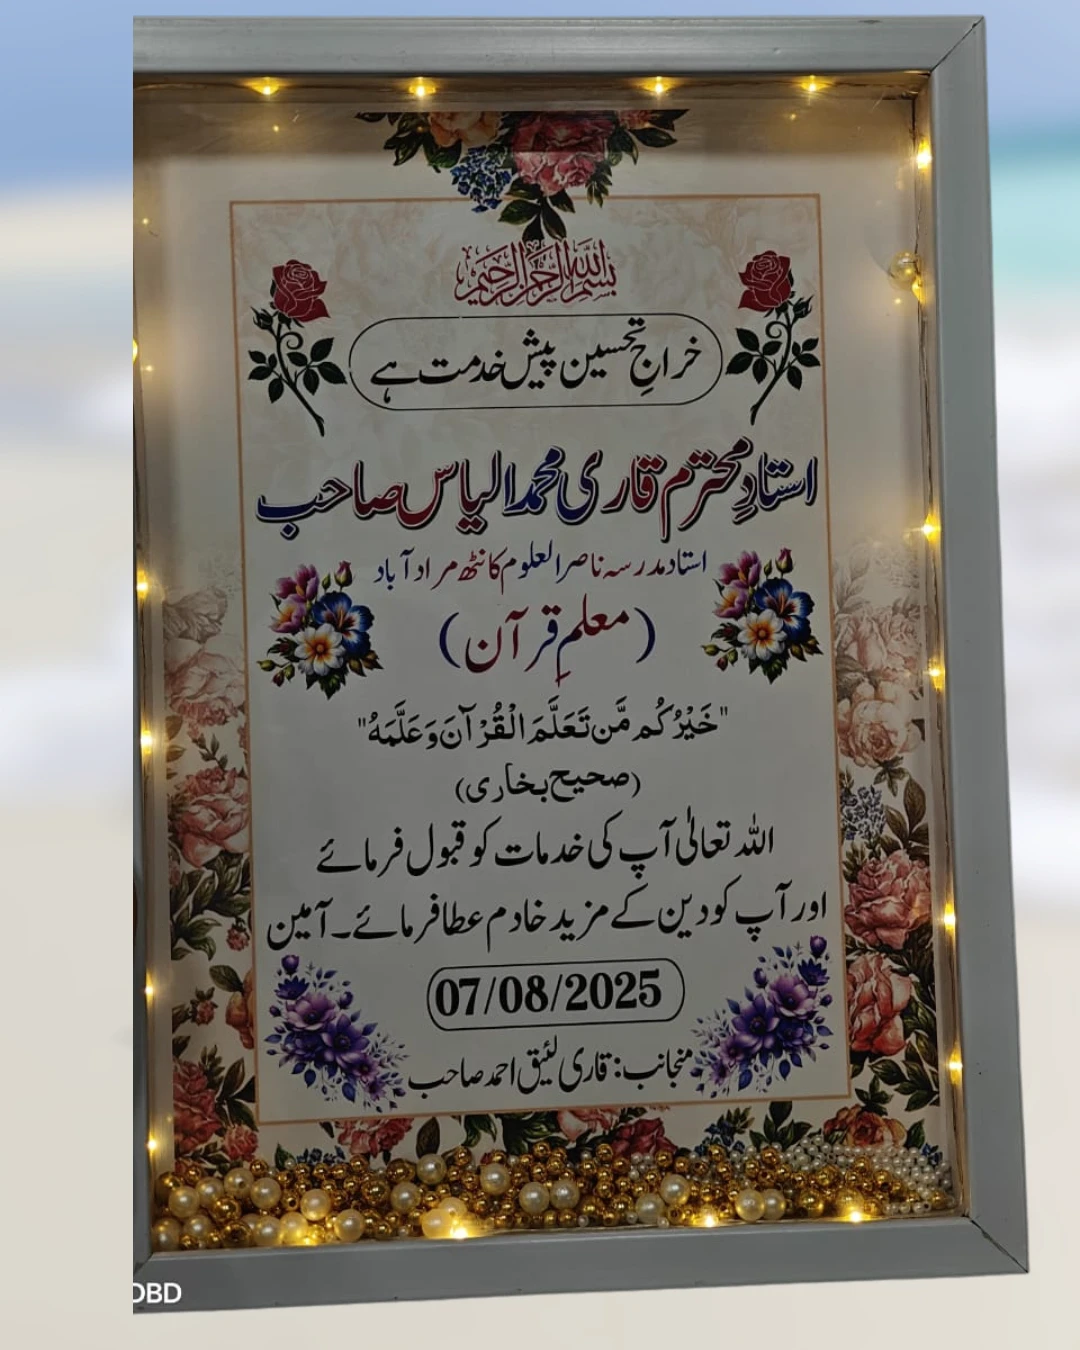 بسم اللہ الرحمن الرحیم
خراجِ تحسین پیش خدمت ہے
استادِ محترم قاری محمد الیاس صاحب
استاد مدرسہ ناصر العلوم کانٹھ مراد آباد
(معلمِ قرآن)
"خَيْرُكُم مَّن تَعَلَّمَ الْقُرْآنَ وَعَلَّمَهُ"
(صحیح بخاری)
اللہ تعالیٰ آپ کی خدمات کو قبول فرمائے
اور آپ کو دین کے مزید خادم عطا فرمائے۔ آمین
07/08/2025
منجانب: قاری لئیق احمد صاحب